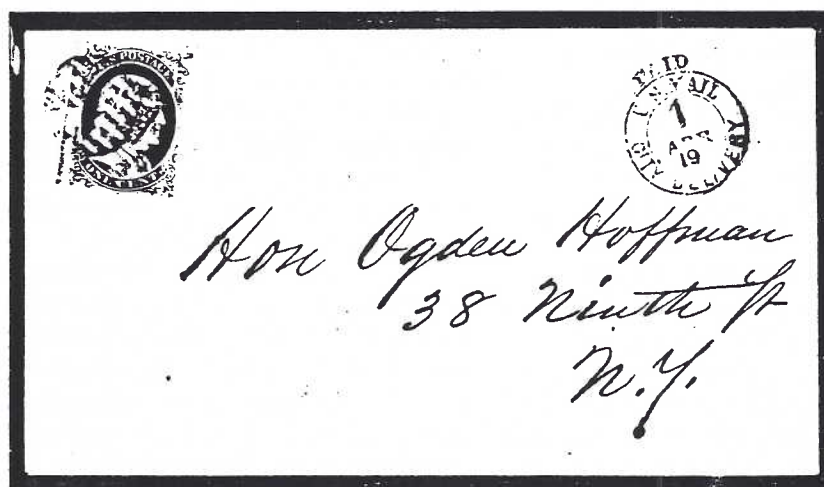 U.S. POSTAGE
PAID
PAID
U.S. MAIL
1
APR
19
CITY DELIVERY
Hon Ogden Hoffman
38 Ninth St
N.Y.